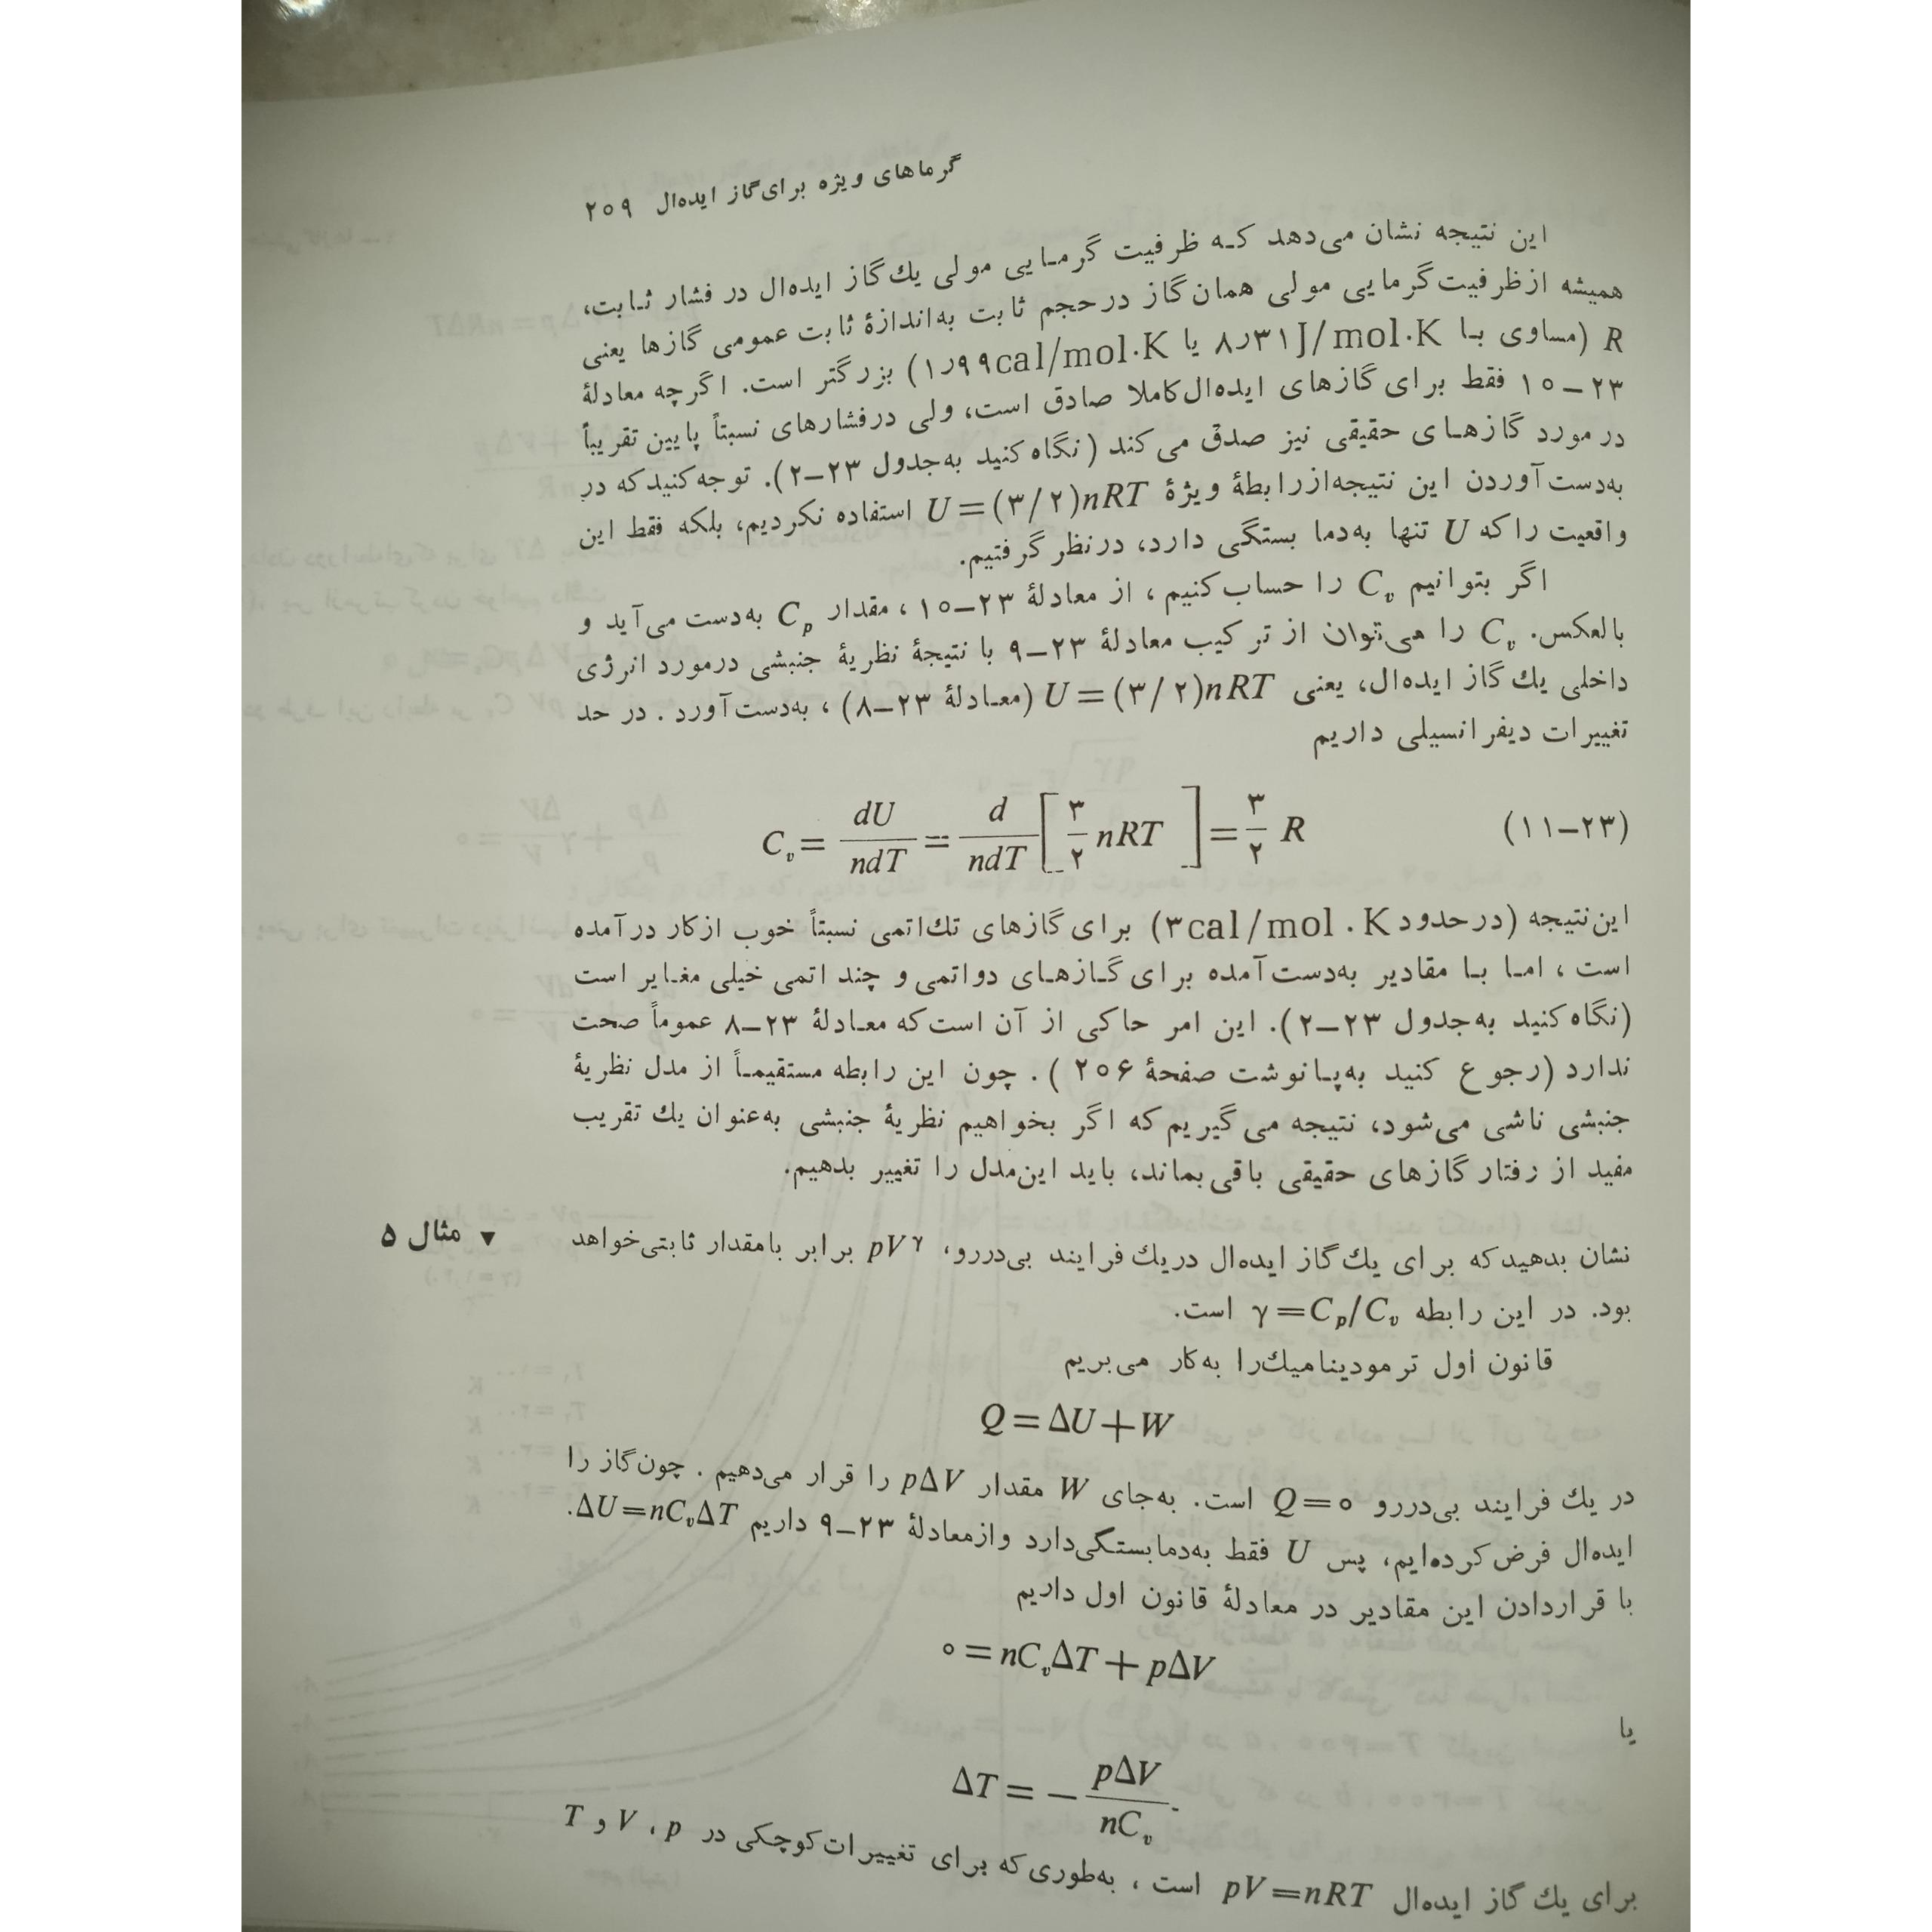 گرماهای ویژه برای گاز ایده‌ال ۲۰۹
این نتیجه نشان می‌دهد که ظرفیت گرمایی مولی یك گاز ایده‌ال در فشار ثابت،
همیشه از ظرفیت گرمایی مولی همان گاز در حجم ثابت به‌اندازهٔ ثابت عمومی گازها یعنی
R (مساوی با ۸٫۳۱J/mol·K یا ۱٫۹۹cal/mol·K) بزرگتر است. اگرچه معادلهٔ
۲۳–۱۰ فقط برای گازهای ایده‌ال کاملا صادق است، ولی در فشارهای نسبتاً پایین تقریباً
در مورد گازهای حقیقی نیز صدق می‌کند (نگاه کنید به‌جدول ۲۳–۲). توجه کنید که در
به‌دست آوردن این نتیجه از رابطهٔ ویژهٔ U=(۳/۲)nRT استفاده نکردیم، بلکه فقط این
واقعیت را که U تنها به‌دما بستگی دارد، درنظر گرفتیم.
اگر بتوانیم C_v را حساب کنیم، از معادلهٔ ۲۳–۱۰، مقدار C_p به‌دست می‌آید و
بالعکس. C_v را می‌توان از ترکیب معادلهٔ ۲۳–۹ با نتیجهٔ نظریهٔ جنبشی درمورد انرژی
داخلی یك گاز ایده‌ال، یعنی U=(۳/۲)nRT (معادلهٔ ۲۳–۸)، به‌دست آورد. در حد
تغییرات دیفرانسیلی داریم
(۲۳–۱۱) C_v = dU/ndT = d/ndT [۳/۲ nRT] = ۳/۲ R
این نتیجه (در حدود ۳cal/mol.K) برای گازهای تك‌اتمی نسبتاً خوب ازکار درآمده
است، اما با مقادیر به‌دست آمده برای گازهای دواتمی و چند اتمی خیلی مغایر است
(نگاه کنید به‌جدول ۲۳–۲). این امر حاکی از آن است که معادلهٔ ۲۳–۸ عموماً صحت
ندارد (رجوع کنید به‌پانوشت صفحهٔ ۲۰۶). چون این رابطه مستقیماً از مدل نظریهٔ
جنبشی ناشی می‌شود، نتیجه می‌گیریم که اگر بخواهیم نظریهٔ جنبشی به‌عنوان یك تقریب
مفید از رفتار گازهای حقیقی باقی‌بماند، باید این‌مدل را تغییر بدهیم.
▼ مثال ۵
نشان بدهید که برای یك گاز ایده‌ال در یك فرایند بی‌دررو، pV^γ برابر با مقدار ثابتی خواهد
بود. در این رابطه γ=C_p/C_v است.
قانون اول ترمودینامیك را به‌کار می‌بریم
Q=ΔU+W
در یك فرایند بی‌دررو Q=۰ است. به‌جای W مقدار pΔV را قرار می‌دهیم. چون گاز را
ایده‌ال فرض کرده‌ایم، پس U فقط به‌دما بستگی دارد و از معادلهٔ ۲۳–۹ داریم ΔU=nC_vΔT.
با قراردادن این مقادیر در معادلهٔ قانون اول داریم
۰=nC_vΔT+pΔV
یا
ΔT = − pΔV/nC_v
برای یك گاز ایده‌ال pV=nRT است، به‌طوری که برای تغییرات کوچکی در p، V و T